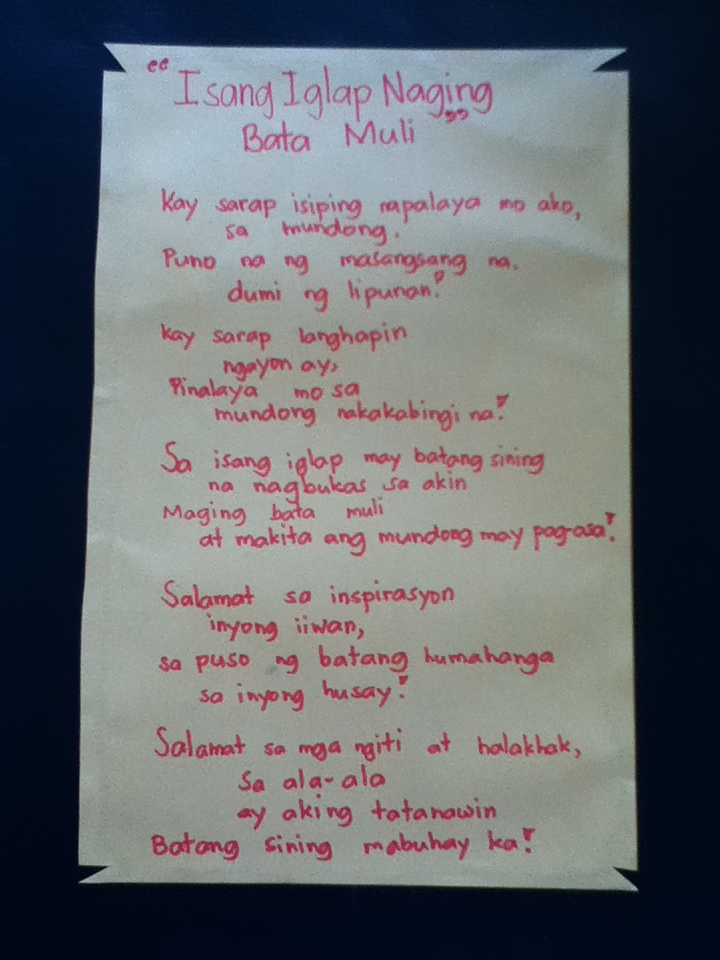 "Isang Iglap Naging
Bata Muli"
Kay sarap isiping napalaya mo ako,
sa mundong.
Puno na ng masangsang na.
dumi ng lipunan!
Kay sarap langhapin
ngayon ay,
Pinalaya mo sa
mundong nakakabingi na!
Sa isang iglap may batang sining
na nagbukas sa akin
Maging bata muli
at makita ang mundong may pag-asa!
Salamat sa inspirasyon
inyong iiwan,
sa puso ng batang humahanga
sa inyong husay!
Salamat sa mga ngiti at halakhak,
Sa ala-ala
ay aking tatanawin
Batang sining mabuhay ka!